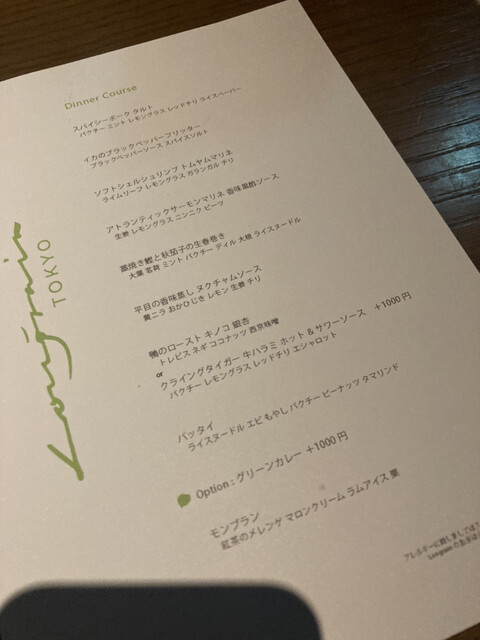 Longrain
TOKYO
Dinner Course
スパイシーポーク タルト
パクチー ミント レモングラス レッドチリ ライスペーパー
イカのブラックペッパーフリッター
ブラックペッパーソース スパイスソルト
ソフトシェルシュリンプ トムヤムマリネ
ライムリーフ レモングラス ガランガル チリ
アトランティックサーモンマリネ 香味風館ソース
生姜 レモングラス ニンニク ビーツ
藁焼き鰹と秋茄子の生春巻き
大葉 茗荷 ミント パクチー ディル 大根 ライスヌードル
平目の香味蒸し ヌクチャムソース
黄ニラ おかひじき レモン 生姜 チリ
鴨のロースト キノコ 銀杏
トレビス ネギ ココナッツ 西京味噌
or
クライングタイガー 牛ハラミ ホット & サワーソース +1000円
パクチー レモングラス レッドチリ エシャロット
パッタイ
ライスヌードル エビ もやし パクチー ピーナッツ タマリンド
Option : グリーンカレー +1000円
モンブラン
紅茶のメレンゲ マロンクリーム ラムアイス 栗
アレルギーに関しましては
Longrain の